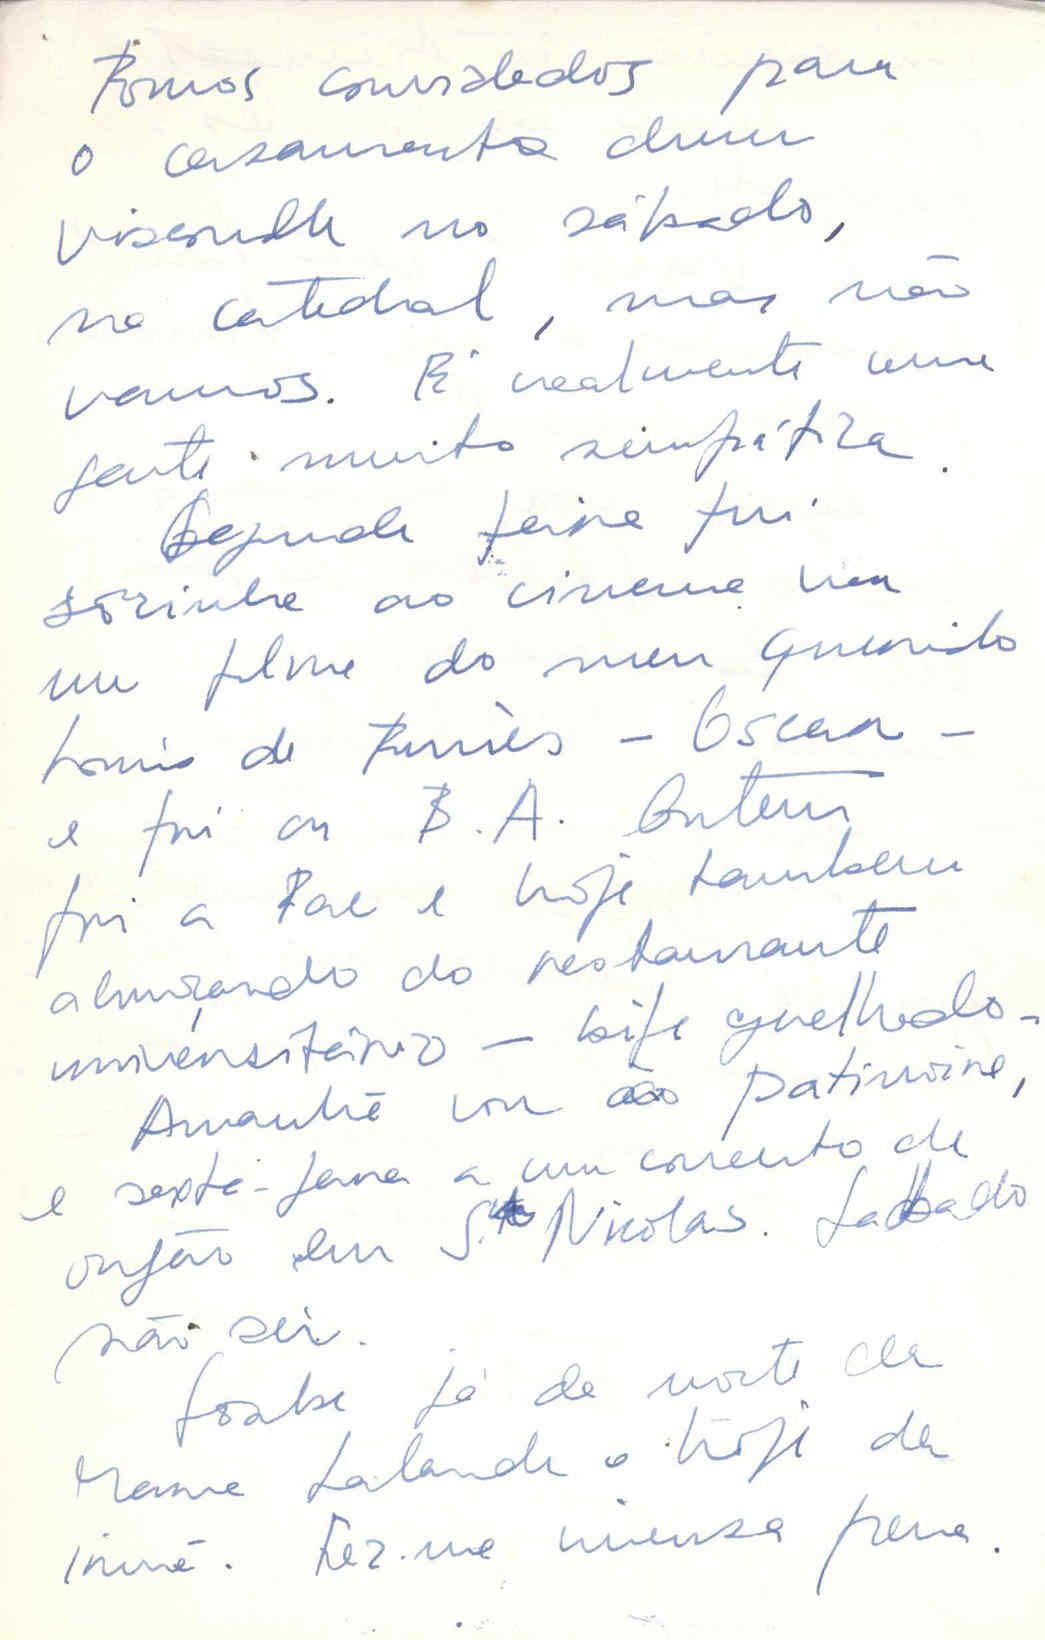 Fomos convidados para
o casamento dum
visconde no sábado,
na catedral, mas não
vamos. É realmente uma
gente muito simpática.
Segunda feira fui
sózinha ao cinema ver
um filme do meu querido
Louis de Funès - Oscar -
e fui ao B.A. Ontem
fui a Fac e hoje tambem
almoçando do restaurante
universitário - bife grelhado -
Amanhã vou ao patinoire,
e sexta-feira a um concerto de
orgão em S. Nicolas. Sabado
não sei.
Soube já da morte da
Mame Lalande e hoje da
irmã. Fez-me imensa pena.